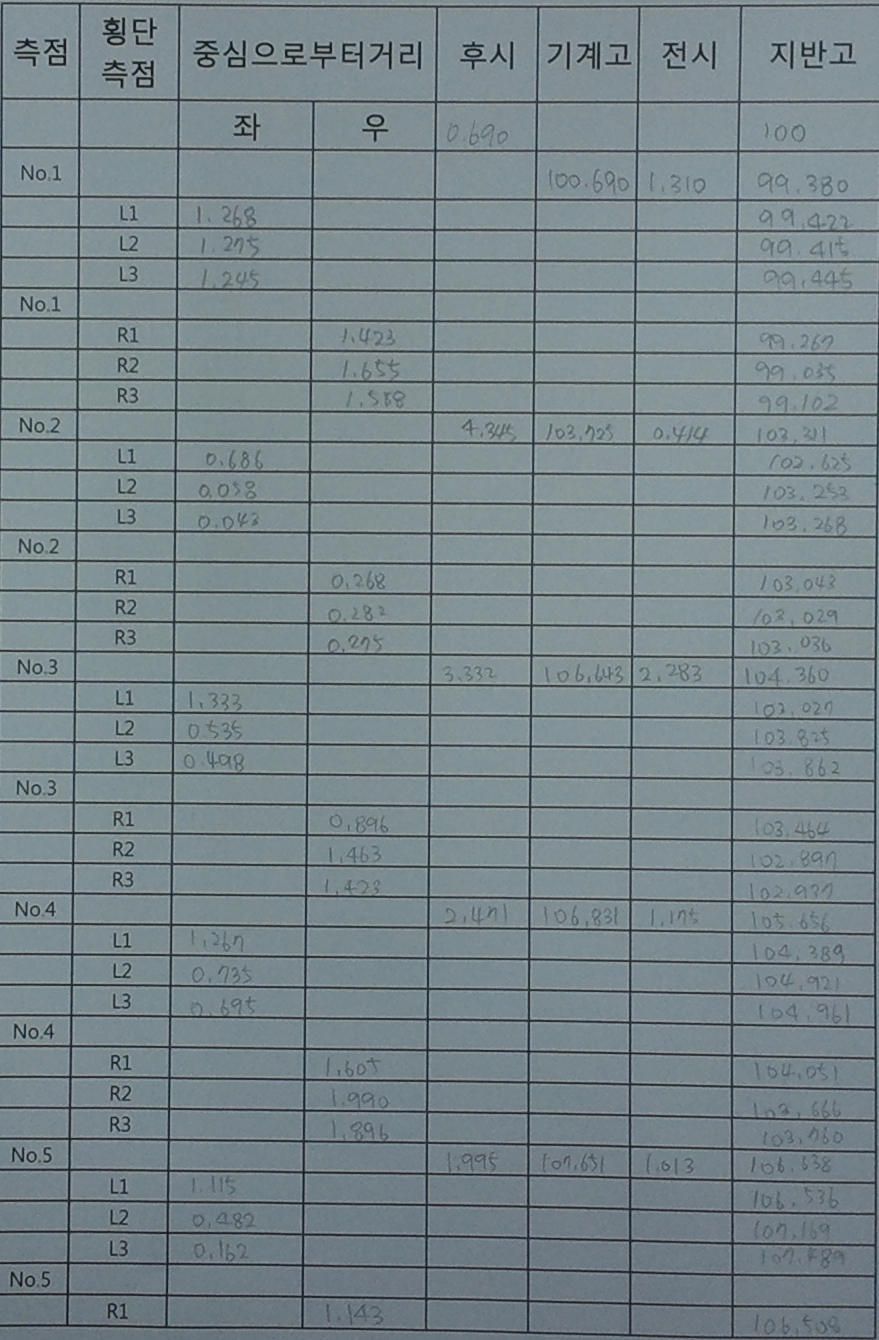 측점 횡단 측점 중심으로부터거리 후시 기계고 전시 지반고
좌 우 0.690 100
No.1 100.690 1.310 99.380
L1 1.268 99.422
L2 1.275 99.415
L3 1.245 99.445
No.1
R1 1.423 99.267
R2 1.655 99.035
R3 1.588 99.102
No.2 4.345 103.725 0.414 103.311
L1 0.686 102.625
L2 0.058 103.253
L3 0.043 103.268
No.2
R1 0.268 103.043
R2 0.282 103.029
R3 0.275 103.036
No.3 3.332 106.643 2.283 104.360
L1 1.333 103.027
L2 0.535 103.825
L3 0.498 103.862
No.3
R1 0.896 103.464
R2 1.463 102.897
R3 1.423 102.937
No.4 2.471 106.831 1.175 105.656
L1 1.267 104.389
L2 0.735 104.921
L3 0.695 104.961
No.4
R1 1.605 104.051
R2 1.990 103.666
R3 1.896 103.760
No.5 1.995 107.651 1.013 106.638
L1 1.115 106.536
L2 0.482 107.169
L3 0.162 107.489
No.5
R1 1.143 106.508